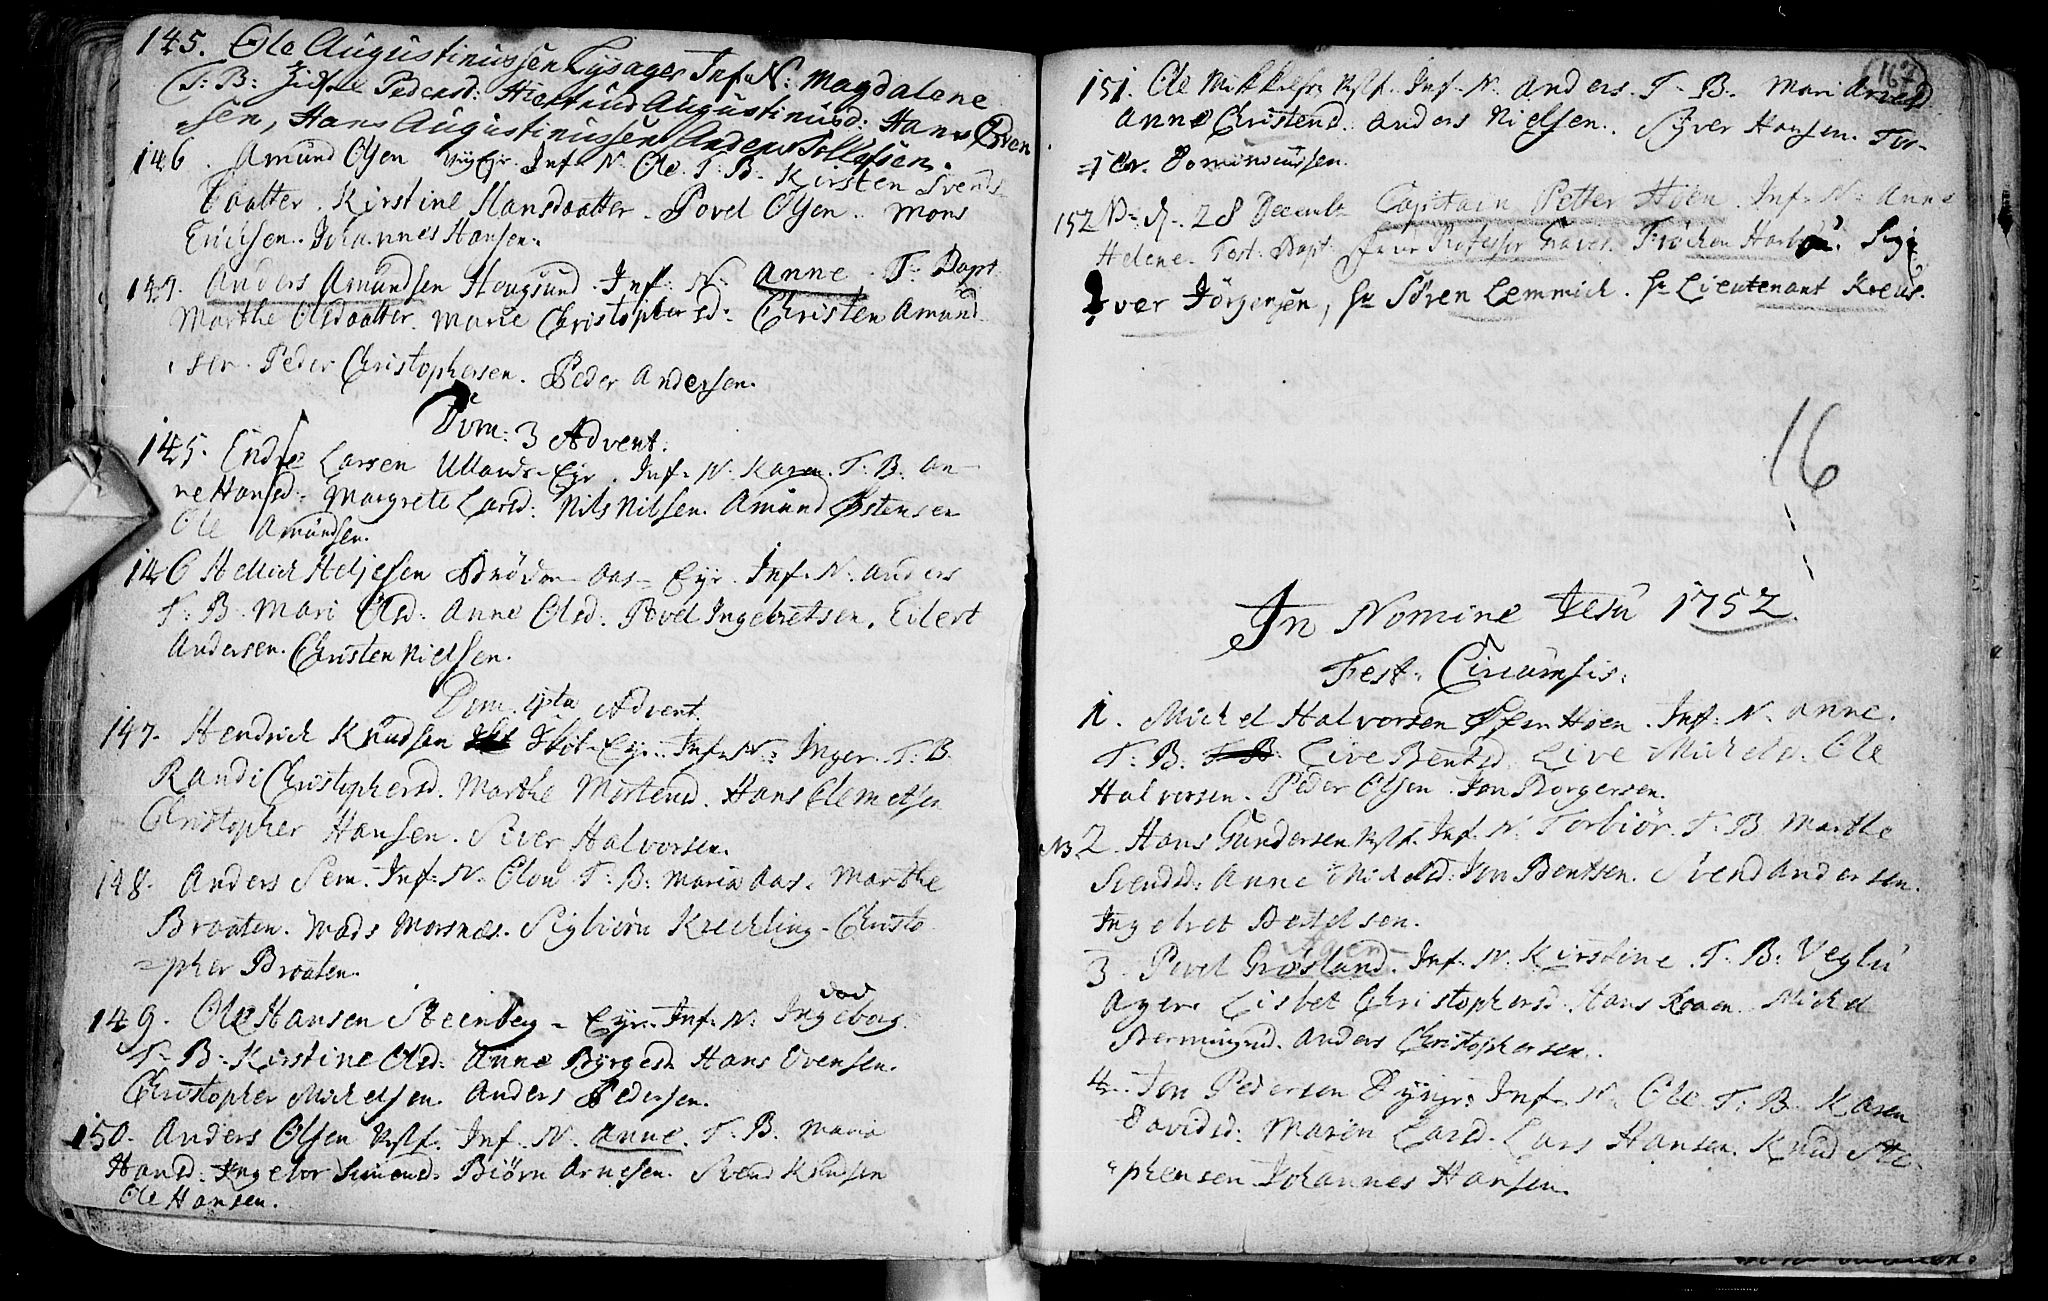 145. Ole Augustinussen Lysager Inf: N: Magdalene
T: B: Pedersd: Hiertrud Augustinusd: Hans Even
sen, Hans Augustinussen Anders Tollefsen.
146. Amund Olsen Inf: N. Ole. T: B. Kirsten Svends
Daatter. Kirstine Hansdaatter. Povel Olsen. Mons
Erichsen. Johannes Hansen.
147. Anders Amundsen Hougsund. Inf: N: Anne. T: Dapt:
Marthe Olsdaatter. Marie Christophersd. Christen Amund
sen. Peder Christophersen. Peder Andersen.
Dom: 3 Advent.
145. Endre Larsen Ullands-Eyr. Inf: N. Karen. T: B. An-
ne Hansd. Margrete Larsd: Nils Nilsen. Amund Østensen
Ole Amundsen.
146 Hellich Heljesen Aas- Eyr. Inf: N: Anders
T: B. Mari Olsd: Anne Olsd. Povel Ingebretsen. Eilert
Andersen. Christen Nielsen.
Dom. 4ta Advent.
147. Hendrich Knudsen Eyr. Inf: N: Inger. T: B.
Randi Christophersd. Marthe Mortensd. Hans Clemetsen
Christopher Hansen. Siver Halvorsen.
148. Anders Sem. Inf: N. Olow T: B: Maria Aas. Marthe
Braaten. Mads Morsnæs. Sigbiørn Krechling. Christo
=pher Braaten.
149. Ole Hansen Steinberg- Eyr. Inf: N: Ingeborg. død
T: B: Kirstine Olsd: Anne Børgesd. Hans Evensen.
Christopher Michelsen. Anders Pedersen.
150. Anders Olsen Inf. N. Anne. T: B. Maria
Hansd: Ingebor Simensd. Biørn Arnesen. Svend Knudsen
Ole Hansen.
167
151. Ole Mikkelsen Inf. N. Anders. T. B. Mari Arnesd
Anne Christensd. Anders Nielsen. Syver Hansen. Tor-
=ger Dominicussen.
152 28 Decemb. Capitain Petter Hoen. Inf: N: Anne
Helene. Test: Dapt. Professor Graves. Frøchen
ver Jörgensen, Hr Søren Lemmich. Hr Lieutenant Kreus.
16
In Nomine Jesu 1752.
Fest. Circumsis:
1. Michel Halvorsen Hoen. Inf: N. Anne.
T: B. Live Bentsd. Live Michelsd. Ole
Halvorsen. Peder Olsen. Jon Borgersen.
NB 2. Hans Gundersen Inf. N. Torbiør. T. B. Marthe
Svendsd: Anne Michelsd: Jon Bentsen. Svend Andersen.
Ingebret Bertelsen.
3. Povel Grøsland. Inf. N. Kirstine. T. B. Veglu
Ager. Lisbet Christophersd. Hans Michel
Anders Christophersen.
4. Jon Pedersen Inf. N. Ole. T: B. Karen
Davidsd: Maren Larsd. Lars Hansen. Knud Ste-
phensen Johannes Hansen.